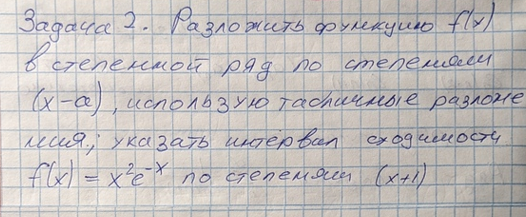 Задача 2. Разложить функцию f(x)
в степенной ряд по степеням
(x-a), используя табличные разложе
ния, указать интервал сходимости
f(x) = x²e⁻ˣ по степеням (x+1)